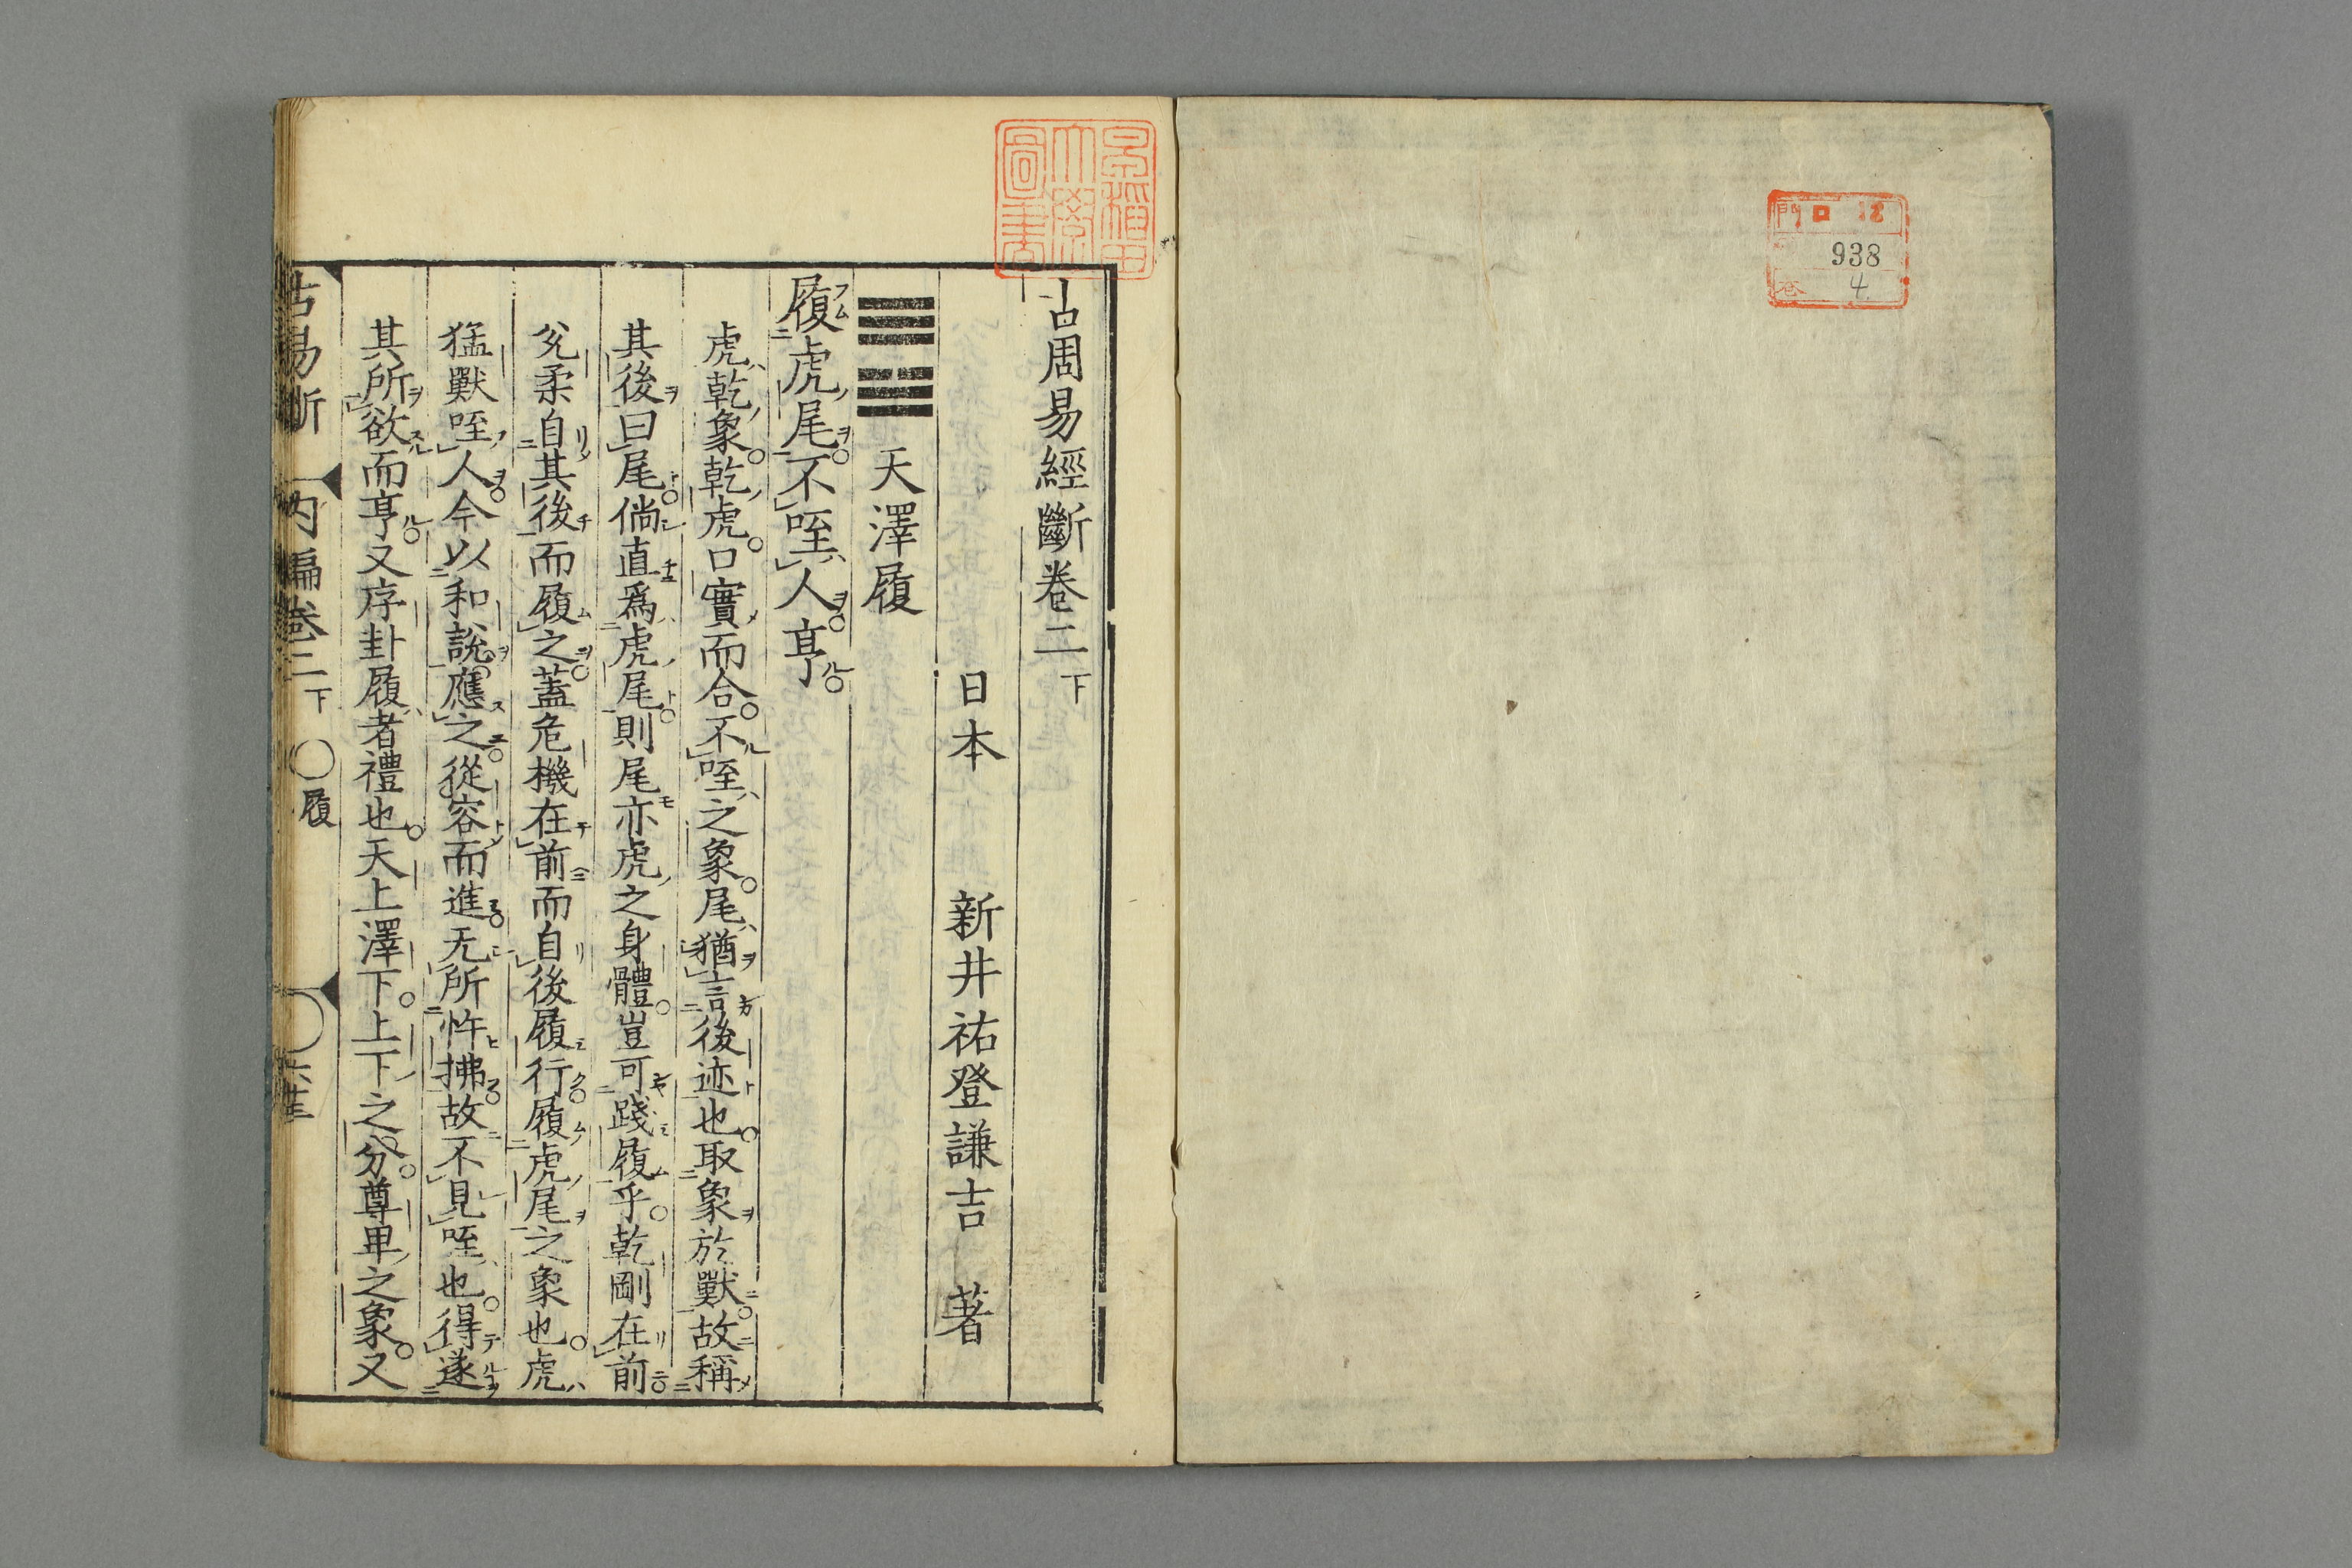 門 口 12
938
巻 4
早稲田
大學
圖書
古周易經斷卷二 下
日本 新井祐登謙吉 著
天澤履
履虎尾不咥人亨
虎乾象乾虎口實而合不咥之象尾猶言後迹也取象於獸故稱
其後曰尾倘直爲虎尾則尾亦虎之身體豈可踐履乎乾剛在前
兊柔自其後而履之蓋危機在前而自後履行履虎尾之象也虎
猛獸咥人今以和說應之從容而進无所忤拂故不見咥也得遂
其所欲而亨又序卦履者禮也天上澤下上下之分尊卑之象又
古易斷 内編卷二 下 履